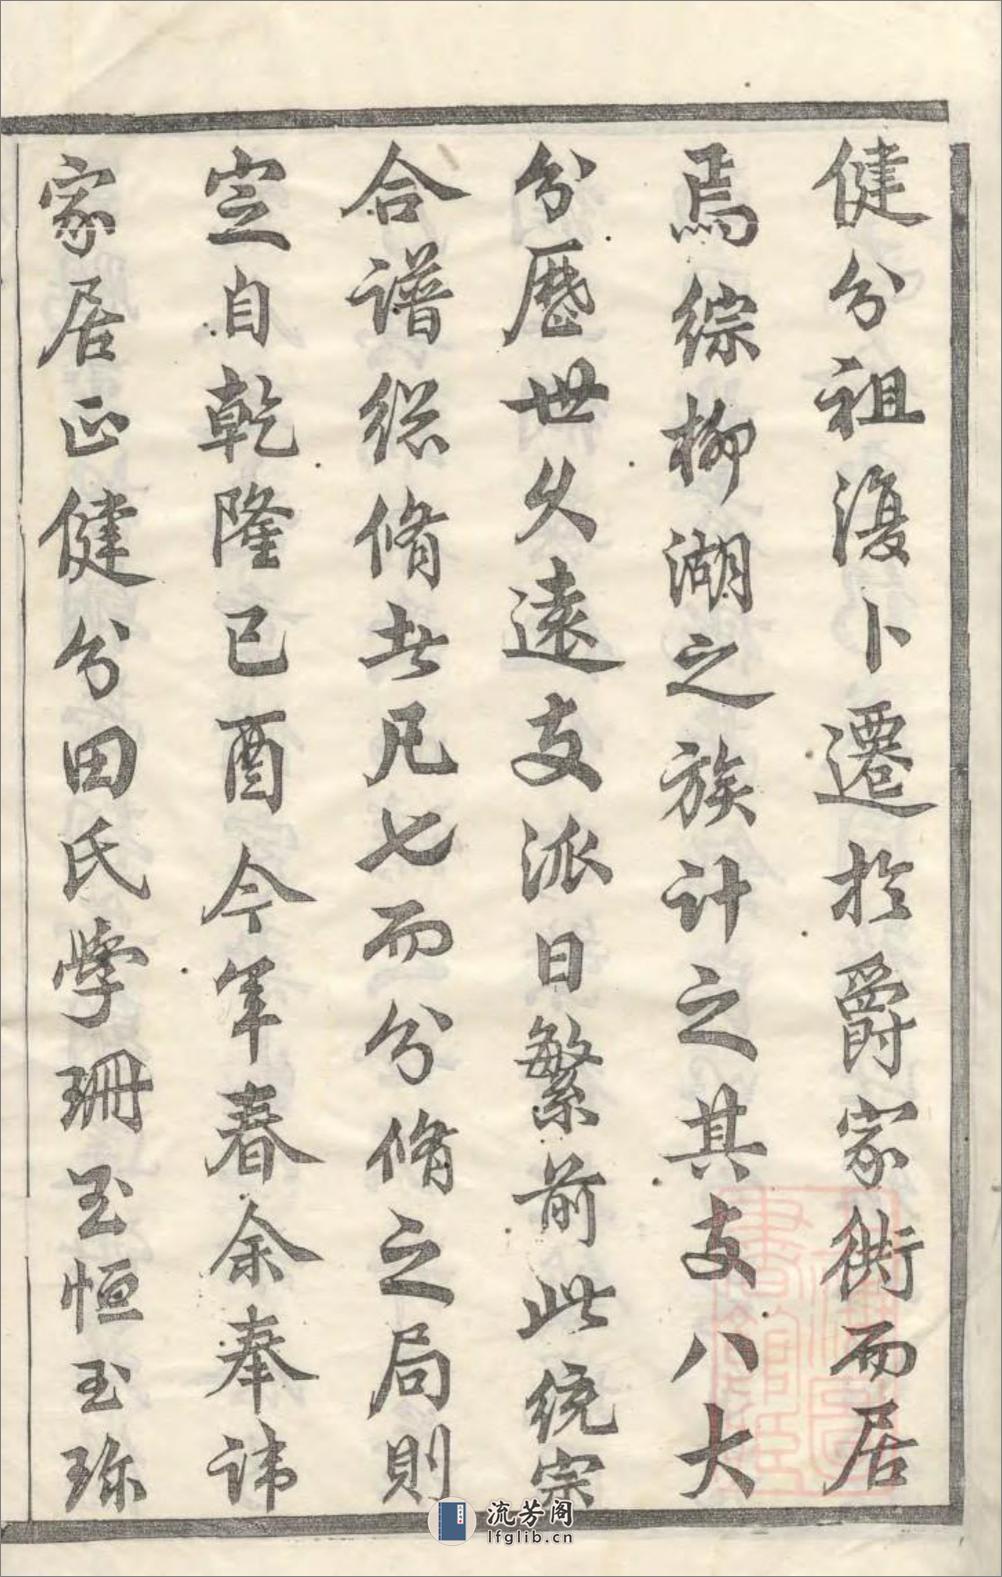 健分祖復卜遷於爵家衖而居
焉綜柳湖之族計之其支八大
分歷世久遠支派日繁前此統宗
合譜總脩者凡七而分脩之局則
定自乾隆己酉今年春余奉諱
家居正健分田氏學珊玉恒玉珎
流芳阁
lfglib.cn